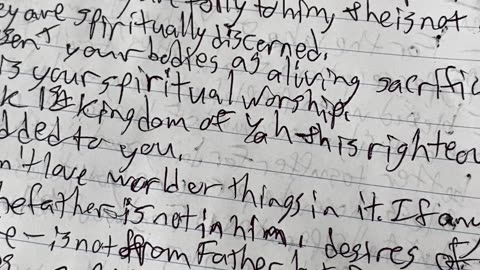 ey are spiritually discerned.
sent your bodies as a living sacrific
is your spiritual worship.
k 1st kingdom of Yah + his righteou
dded to you.
n't love world or things in it. If any
he father is not in him, desires of
e - is not from Father